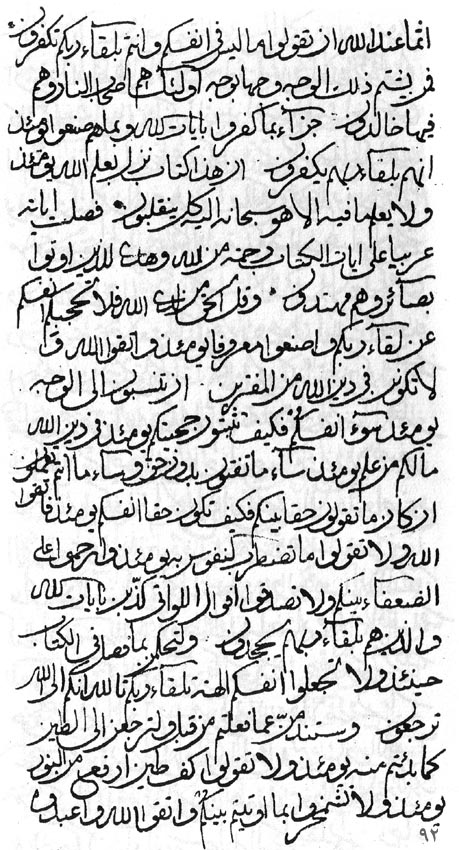 انما عند الله ان تقولوا ما ليس فى انفسكم وانتم بلقاء ربكم تكفرون
فمن يشتم ذلك الوجه وجها بوجه اولئك هم اصحاب النار وهم
فيها خالدون جزاء بما كفروا بايات الله وبما هم صنعوا يومئذ
انهم بلقاء ربهم يكفرون ان هذا كتاب نزل بعلم الله يومئذ
ولا يعلم ما فيه الا هو سبحانه اليه كل ينقلبون فصلت اياته
عربيا على ايات الكتاب رحمة من الله وهدى للذين اوتوا
بصائر وهم مهتدون وقل الحق من الله فلا تحجبكم انفسكم
عن لقاء ربكم واصنعوا معروفا يومئذ واتقوا الله و
لا تكونن فى دين الله من المفترين ان تنسبون الى الوجه
يومئذ سوء انفسكم فكيف يومئذ فى دين الله
ما لكم من علم يومئذ ساء ما تقولون بدون حق وساء ما انتم تعملون
ان كان ما تقولون حقا بينكم فكيف تكون حقا انفسكم يومئذ فاتقوا
الله ولا تقولوا ما تضطرب النفوس به يومئذ وارحموا على
الضعفاء بينكم ولا تصدقوا اقوال اللواتى كذبن بايات الله
والذين هم بلقاء ربهم يجحدون ولتحكمن بما فصل فى الكتاب
حينئذ ولا تجعلوا انفسكم الهة تلقاء ربكم تالله انكم الى الله
ترجعون وستسئلن عما تعلم من قبل ولترجعن الى الطين
كما بدئتم منه يومئذ ولا تقولوا اكف طين ارفع من النور
يومئذ ولا بما اوتيتم بينكم واتقوا الله واعبدوه
٩٢